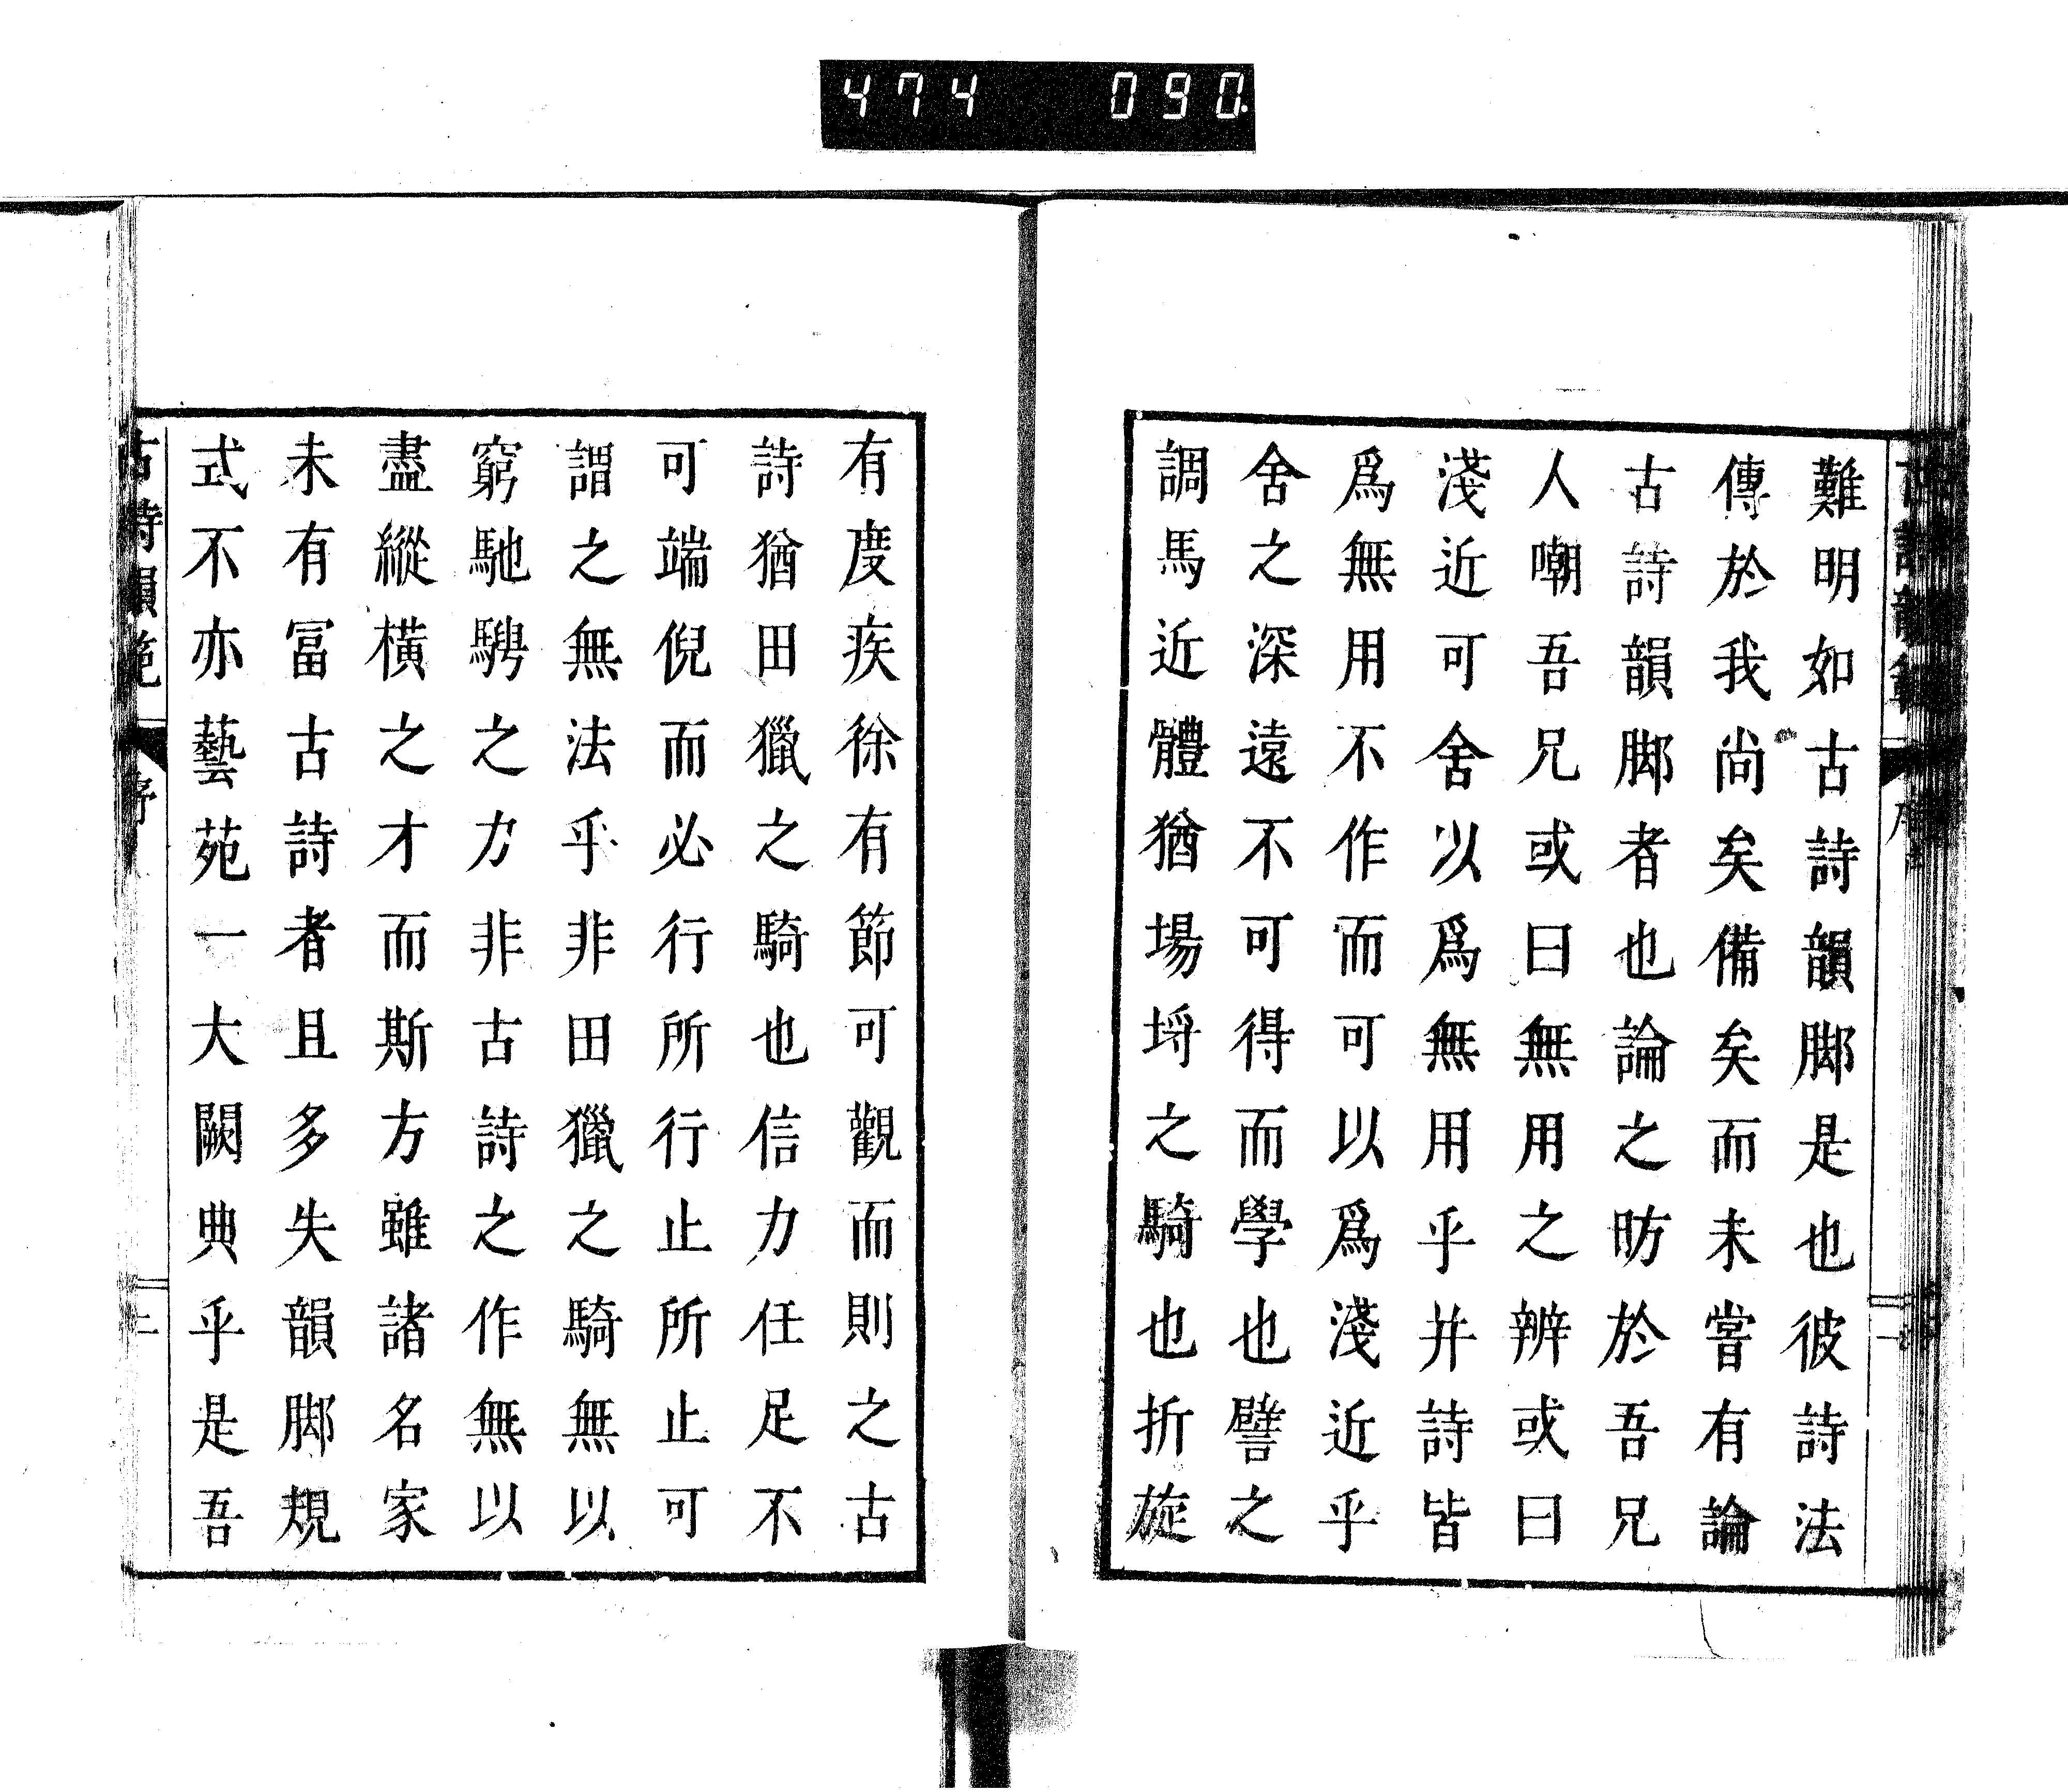 474 090
古詩韻範 序
難明如古詩韻脚是也彼詩法
傳於我尚矣備矣而未嘗有論
古詩韻脚者也論之昉於吾兄
人嘲吾兄或曰無用之辨或曰
淺近可舍以爲無用乎并詩皆
爲無用不作而可以爲淺近乎
舍之深遠不可得而學也譬之
調馬近體猶場埒之騎也折旋
有度疾徐有節可觀而則之古
詩猶田獵之騎也信力任足不
可端倪而必行所行止所止可
謂之無法乎非田獵之騎無以
窮馳騁之力非古詩之作無以
盡縱橫之才而斯方雖諸名家
未有冨古詩者且多失韻脚規
式不亦藝苑一大闕典乎是吾
古詩韻範 序 二